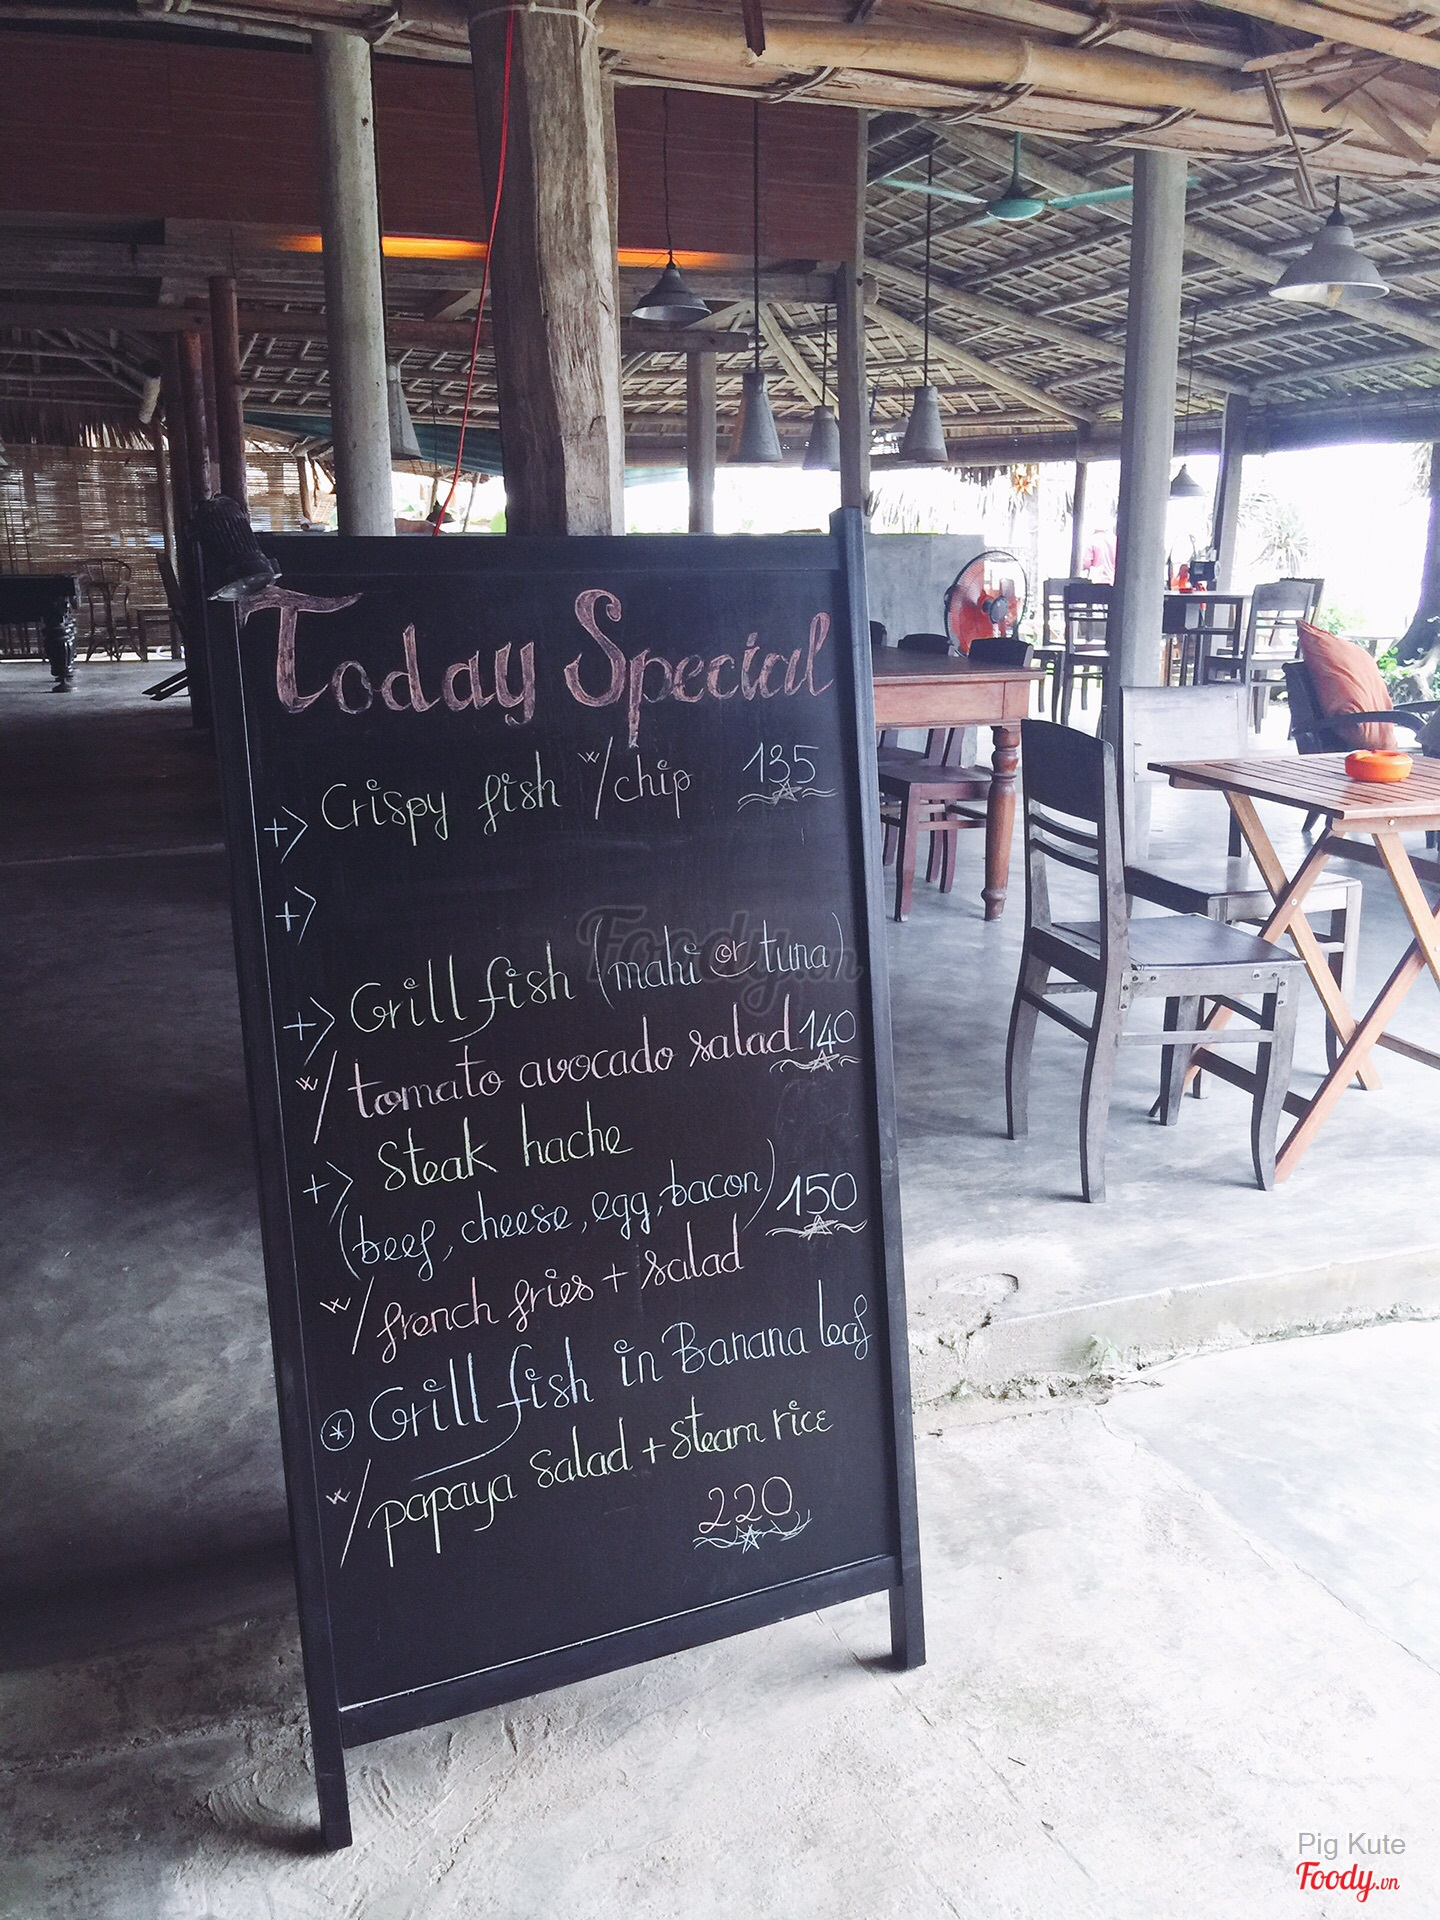 Today Special
+> Crispy fish w/chip 135
+>
+> Grill fish (mahi or tuna)
w/ tomato avocado salad 140
+> Steak hache
(beef, cheese, egg, bacon) 150
w/ french fries + salad
* Grill fish in Banana leaf
w/ papaya salad + steam rice
220
Foody.vn
Pig Kute
Foody.vn